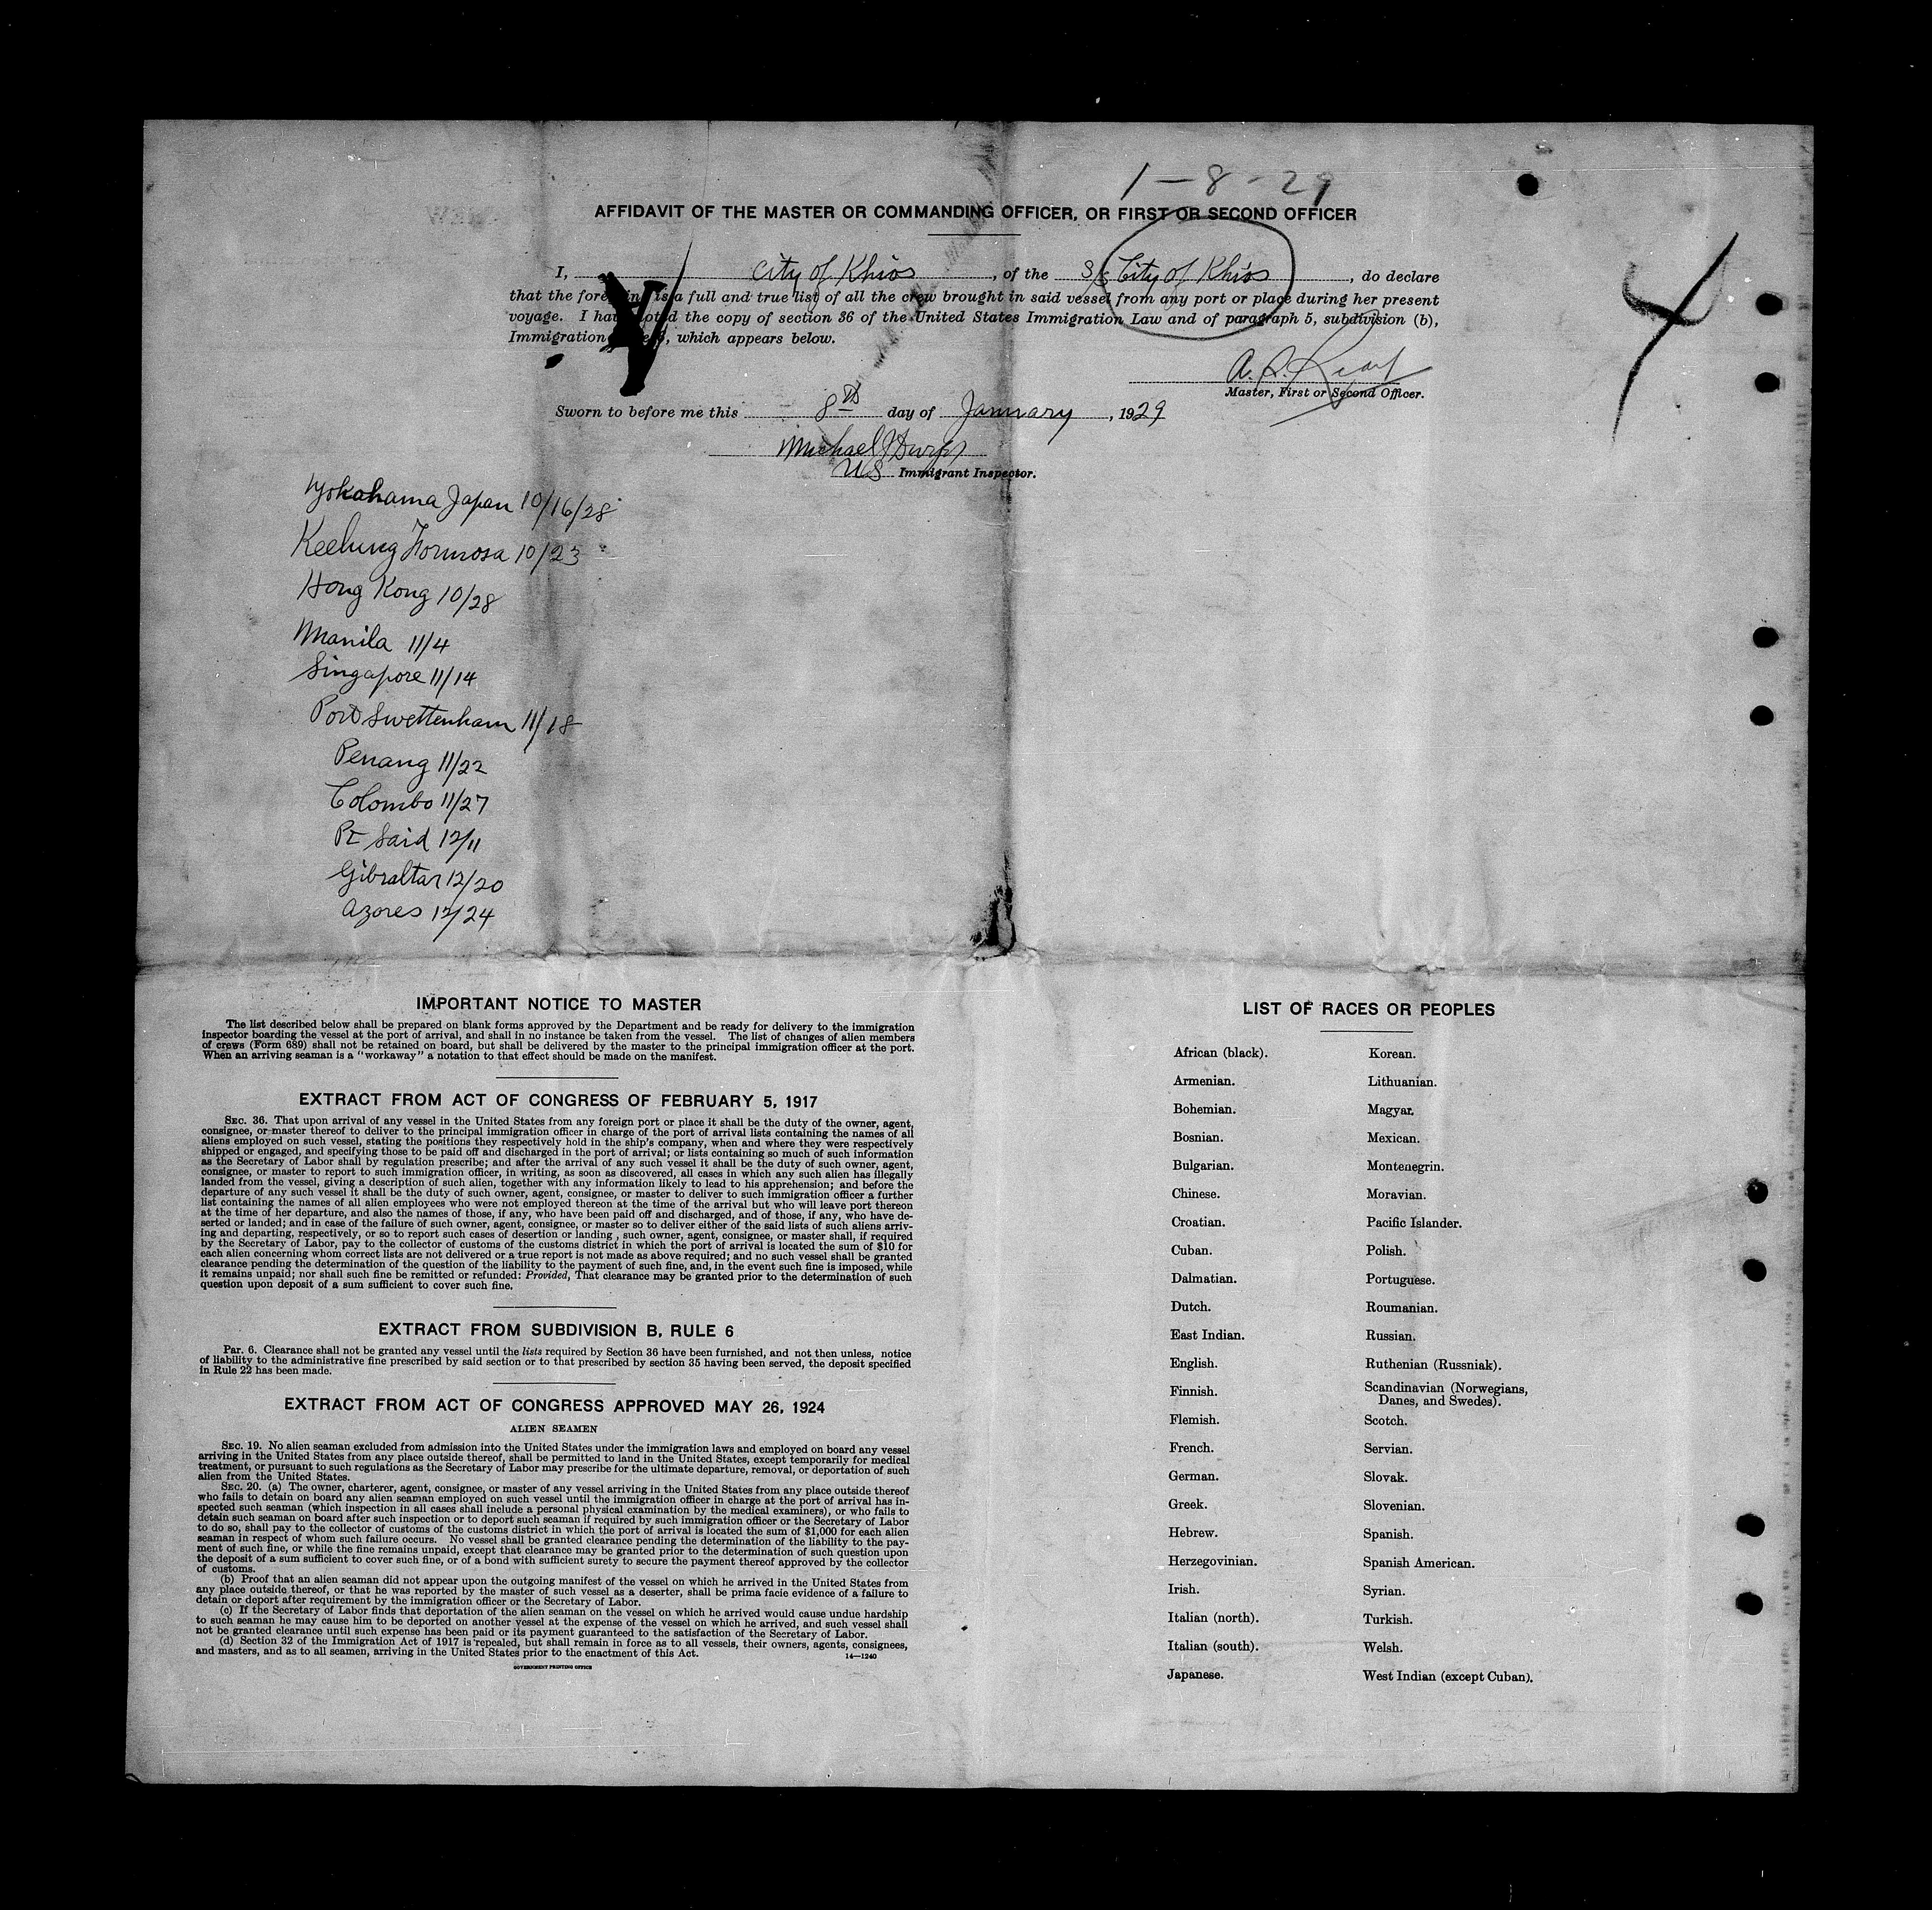 1-8-29
AFFIDAVIT OF THE MASTER OR COMMANDING OFFICER, OR FIRST OR SECOND OFFICER
I, City of Khios, of the S/S City of Khios, do declare
that the foregoing is a full and true list of all the crew brought in said vessel from any port or place during her present
voyage. I have noted the copy of section 36 of the United States Immigration Law and of paragraph 5, subdivision (b),
Immigration, which appears below.
4
A.
Master, First or Second Officer.
Sworn to before me this 8th day of January, 1929
Michael
US Immigrant Inspector.
Yokohama Japan 10/16/28
Keelung Formosa 10/23
Hong Kong 10/28
Manila 11/4
Singapore 11/14
Port Swettenham 11/18
Penang 11/22
Colombo 11/27
Pt Said 12/11
Gibraltar 12/20
Azores 12/24
IMPORTANT NOTICE TO MASTER
The list described below shall be prepared on blank forms approved by the Department and be ready for delivery to the immigration
inspector boarding the vessel at the port of arrival, and shall in no instance be taken from the vessel. The list of changes of alien members
of crews (Form 689) shall not be retained on board, but shall be delivered by the master to the principal immigration officer at the port.
When an arriving seaman is a "workaway" a notation to that effect should be made on the manifest.
EXTRACT FROM ACT OF CONGRESS OF FEBRUARY 5, 1917
SEC. 36. That upon arrival of any vessel in the United States from any foreign port or place it shall be the duty of the owner, agent,
consignee, or master thereof to deliver to the principal immigration officer in charge of the port of arrival lists containing the names of all
aliens employed on such vessel, stating the positions they respectively hold in the ship's company, when and where they were respectively
shipped or engaged, and specifying those to be paid off and discharged in the port of arrival; or lists containing so much of such information
as the Secretary of Labor shall by regulation prescribe; and after the arrival of any such vessel it shall be the duty of such owner, agent,
consignee, or master to report to such immigration officer, in writing, as soon as discovered, all cases in which any such alien has illegally
landed from the vessel, giving a description of such alien, together with any information likely to lead to his apprehension; and before the
departure of any such vessel it shall be the duty of such owner, agent, consignee, or master to deliver to such immigration officer a further
list containing the names of all alien employees who were not employed thereon at the time of the arrival but who will leave port thereon
at the time of her departure, and also the names of those, if any, who have been paid off and discharged, and of those, if any, who have de-
serted or landed; and in case of the failure of such owner, agent, consignee, or master so to deliver either of the said lists of such aliens arriv-
ing and departing, respectively, or so to report such cases of desertion or landing , such owner, agent, consignee, or master, shall, if required
by the Secretary of Labor, pay to the collector of customs of the customs district in which the port of arrival is located the sum of $10 for
each alien concerning whom correct lists are not delivered or a true report is not made as above required; and no such vessel shall be granted
clearance pending the determination of the question of the liability to the payment of such fine, and, in the event such fine is imposed, while
it remains unpaid; nor shall such fine be remitted or refunded: Provided, That clearance may be granted prior to the determination of such
question upon deposit of a sum sufficient to cover such fine.
EXTRACT FROM SUBDIVISION B, RULE 6
Par. 6. Clearance shall not be granted any vessel until the lists required by Section 36 have been furnished, and not then unless, notice
of liability to the administrative fine prescribed by said section or to that prescribed by section 35 having been served, the deposit specified
in Rule 22 has been made.
EXTRACT FROM ACT OF CONGRESS APPROVED MAY 26, 1924
ALIEN SEAMEN
SEC. 19. No alien seaman excluded from admission into the United States under the immigration laws and employed on board any vessel
arriving in the United States from any place outside thereof, shall be permitted to land in the United States, except temporarily for medical
treatment, or pursuant to such regulations as the Secretary of Labor may prescribe for the ultimate departure, removal, or deportation of such
alien from the United States.
SEC. 20. (a) The owner, charterer, agent, consignee, or master of any vessel arriving in the United States from any place outside thereof
who fails to detain on board any alien seaman employed on such vessel until the immigration officer in charge at the port of arrival has in-
spected such seaman (which inspection in all cases shall include a personal physical examination by the medical examiners), or who fails to
detain such seaman on board after such inspection or to deport such seaman if required by such immigration officer or the Secretary of Labor
to do so, shall pay to the collector of customs of the customs district in which the port of arrival is located the sum of $1,000 for each alien
seaman in respect of whom such failure occurs. No vessel shall be granted clearance pending the determination of the liability to the pay-
ment of such fine, or while the fine remains unpaid, except that clearance may be granted prior to the determination of such question upon
the deposit of a sum sufficient to cover such fine, or of a bond with sufficient surety to secure the payment thereof approved by the collector
of customs.
(b) Proof that an alien seaman did not appear upon the outgoing manifest of the vessel on which he arrived in the United States from
any place outside thereof, or that he was reported by the master of such vessel as a deserter, shall be prima facie evidence of a failure to
detain or deport after requirement by the immigration officer or the Secretary of Labor.
(c) If the Secretary of Labor finds that deportation of the alien seaman on the vessel on which he arrived would cause undue hardship
to such seaman he may cause him to be deported on another vessel at the expense of the vessel on which he arrived, and such vessel shall
not be granted clearance until such expense has been paid or its payment guaranteed to the satisfaction of the Secretary of Labor.
(d) Section 32 of the Immigration Act of 1917 is repealed, but shall remain in force as to all vessels, their owners, agents, consignees,
and masters, and as to all seamen, arriving in the United States prior to the enactment of this Act.
14—1240
GOVERNMENT PRINTING OFFICE
LIST OF RACES OR PEOPLES
African (black). Korean.
Armenian. Lithuanian.
Bohemian. Magyar.
Bosnian. Mexican.
Bulgarian. Montenegrin.
Chinese. Moravian.
Croatian. Pacific Islander.
Cuban. Polish.
Dalmatian. Portuguese.
Dutch. Roumanian.
East Indian. Russian.
English. Ruthenian (Russniak).
Finnish. Scandinavian (Norwegians,
Danes, and Swedes).
Flemish. Scotch.
French. Servian.
German. Slovak.
Greek. Slovenian.
Hebrew. Spanish.
Herzegovinian. Spanish American.
Irish. Syrian.
Italian (north). Turkish.
Italian (south). Welsh.
Japanese. West Indian (except Cuban).